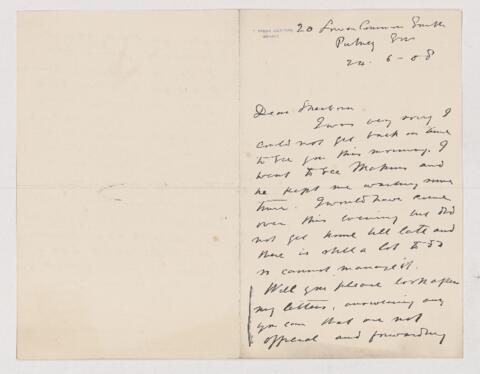 20 Lower Common South
Putney SW
24-6-08
Dear Sherborn
I was very sorry I
could not get back in time
to see you this morning. I
went to see Makins and
he kept me waiting some
time. I would have come
over this evening but did
not get home till late and
there is still a lot to do
so cannot manage it.
Will you please look after
my letters, answering any
you can that are not
official and forwarding